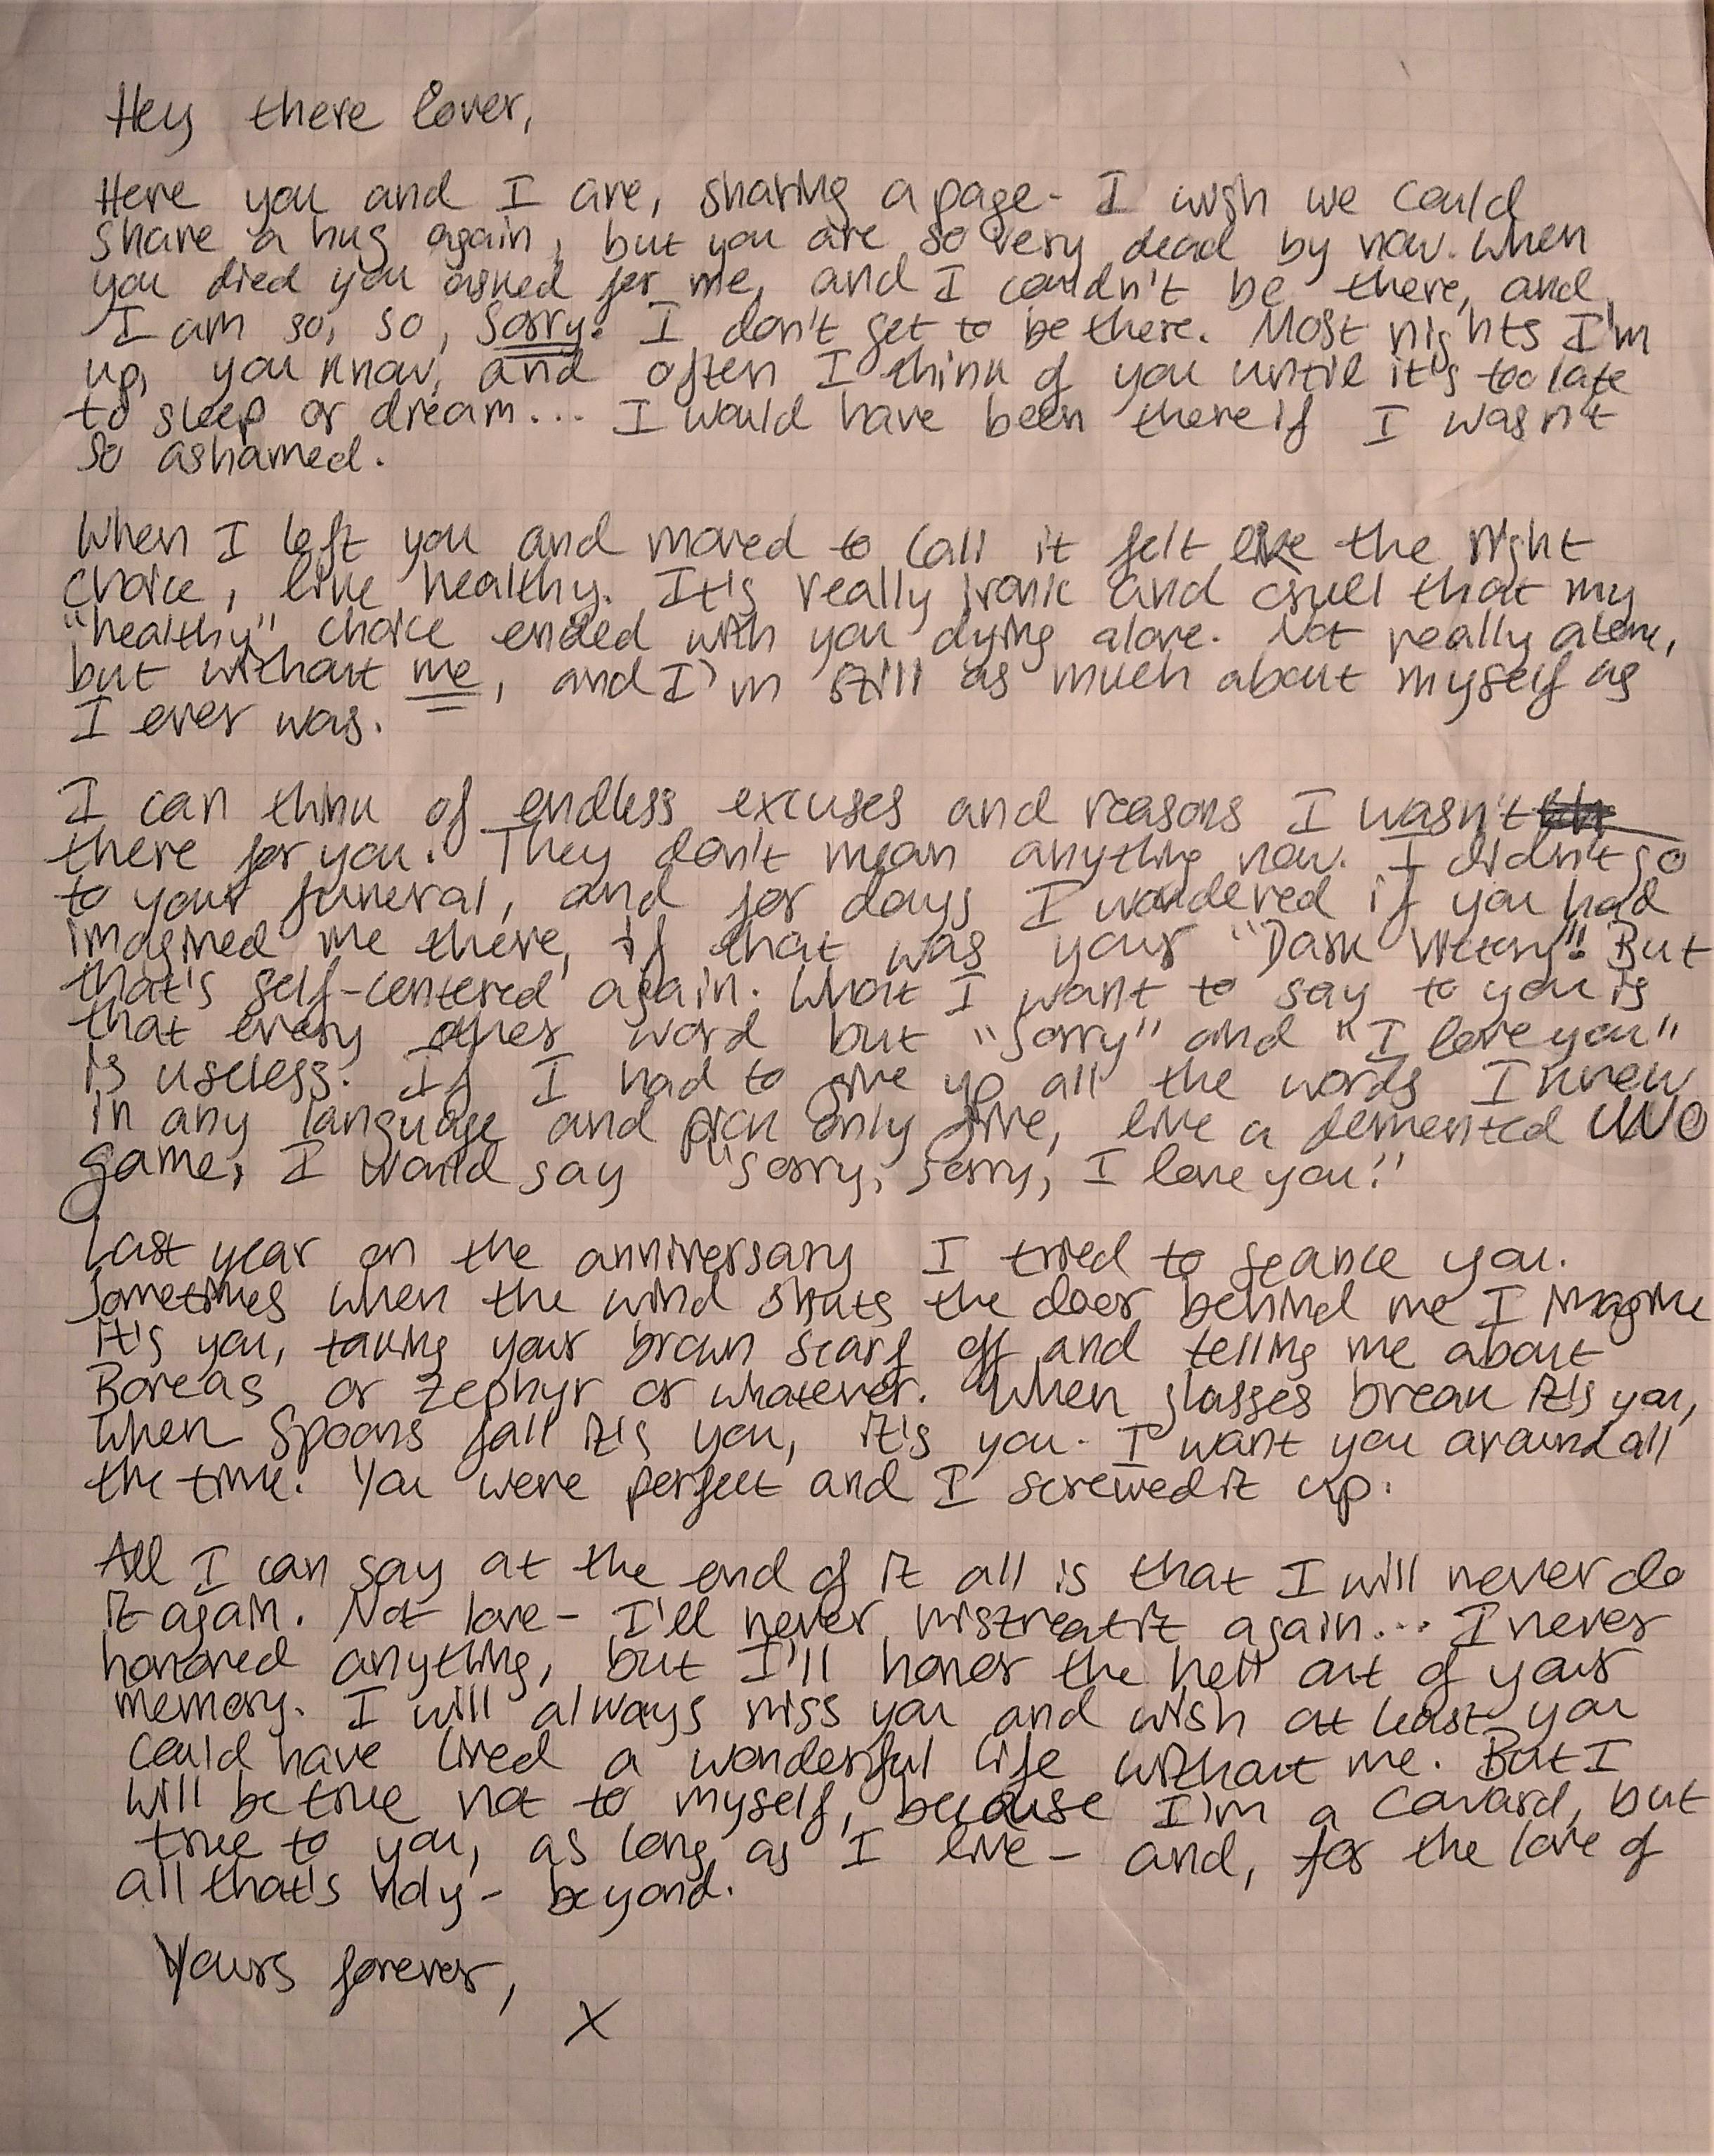 Hey there lover,
Here you and I are, sharing a page - I wish we could
share a hug again, but you are so very dead by now. When
you died you asked for me, and I couldn't be there, and
I am so, so, sorry. I don't get to be there. Most nights I'm
up, you know, and often I think of you until it's too late
to sleep or dream... I would have been there if I wasn't
so ashamed.
When I left you and moved to Cali it felt like the right
choice, like healthy. It's really ironic and cruel that my
"healthy" choice ended with you dying alone. Not really alone,
but without me, and I'm still as much about myself as
I ever was.
I can think of endless excuses and reasons I wasn't
there for you. They don't mean anything now. I didn't go
to your funeral, and for days I wondered if you had
imagined me there, if that was your "Dark Victory". But
that's self-centered again. What I want to say to you is
that every other word but "Sorry" and "I love you"
is useless. If I had to give up all the words I knew
in any language and pick only five, like a demented UNO
game, I would say "Sorry, sorry, I love you."
Last year on the anniversary I tried to seance you.
Sometimes when the wind shuts the door behind me I imagine
it's you, taking your brown scarf off and telling me about
Boreas or Zephyr or whatever. When glasses break it's you,
when spoons fall it's you, it's you. I want you around all
the time. You were perfect and I screwed it up.
All I can say at the end of it all is that I will never do
it again. Not love - I'll never mistreat it again... I never
honored anything, but I'll honor the hell out of your
memory. I will always miss you and wish at least you
could have lived a wonderful life without me. But I
will be true not to myself, because I'm a coward, but
true to you, as long as I live - and, for the love of
all that's holy - beyond.
Yours forever,
X